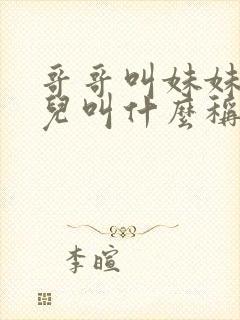 哥哥叫妹妹
兒叫什麼稱
李暄